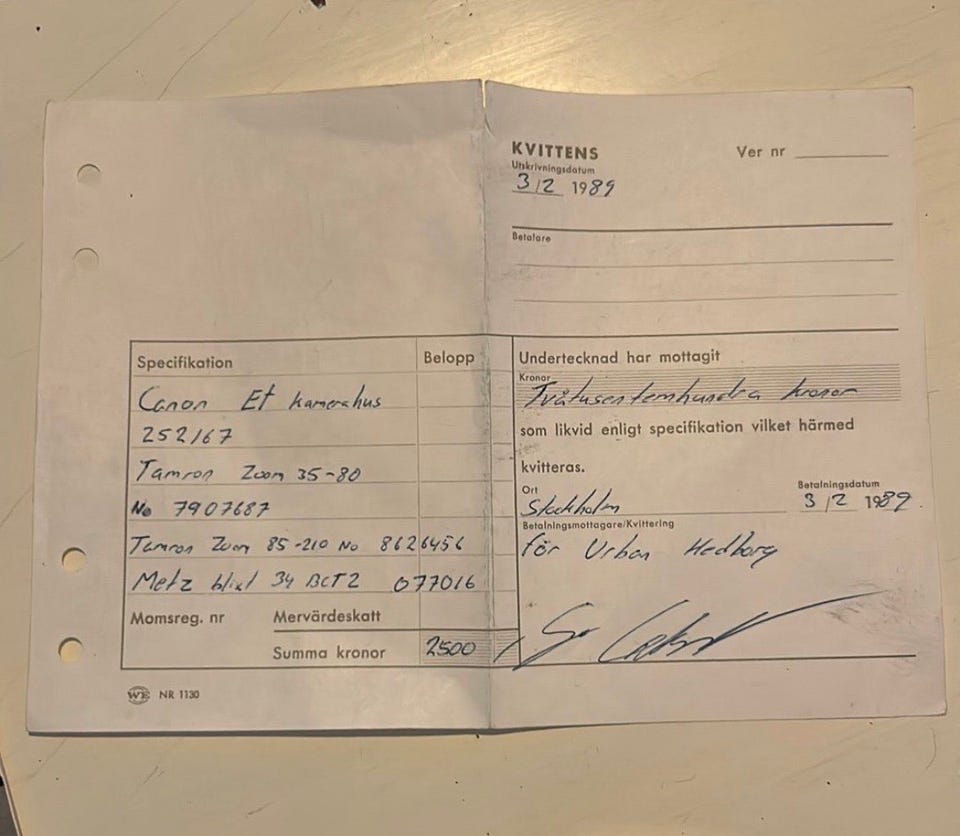 KVITTENS
Ver nr
Utskrivningsdatum
3/2 1989
Betalare
Specifikation
Belopp
Canon Ef kamerahus
252167
Tamron Zoom 35-80
No 7907687
Tamron Zoom 85-210 No 8626456
Metz blixt 34 BCT2 077016
Momsreg. nr
Mervärdeskatt
Summa kronor 2500
WE NR 1130
Undertecknad har mottagit
Kronor
Tvåtusenfemhundra kronor
som likvid enligt specifikation vilket härmed
kvitteras.
Ort
Stockholm
Betalningsdatum
3/2 1989
Betalningsmottagare/Kvittering
för Urban Hedborg